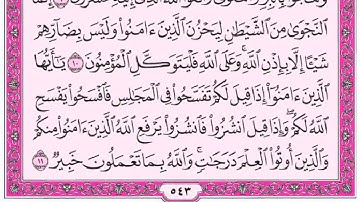 النَّجْوَىٰ مِنَ الشَّيْطَٰنِ لِيَحْزُنَ الَّذِينَ ءَامَنُوا۟ وَلَيْسَ بِضَآرِّهِمْ
شَيْـًٔا إِلَّا بِإِذْنِ اللَّهِ ۚ وَعَلَى اللَّهِ فَلْيَتَوَكَّلِ الْمُؤْمِنُونَ ١٠ يَٰٓأَيُّهَا
الَّذِينَ ءَامَنُوٓا۟ إِذَا قِيلَ لَكُمْ تَفَسَّحُوا۟ فِى الْمَجَٰلِسِ فَافْسَحُوا۟ يَفْسَحِ
اللَّهُ لَكُمْ ۖ وَإِذَا قِيلَ انشُزُوا۟ فَانشُزُوا۟ يَرْفَعِ اللَّهُ الَّذِينَ ءَامَنُوا۟ مِنكُمْ
وَالَّذِينَ أُوتُوا۟ الْعِلْمَ دَرَجَٰتٍ ۚ وَاللَّهُ بِمَا تَعْمَلُونَ خَبِيرٌ ١١
٥٤٣